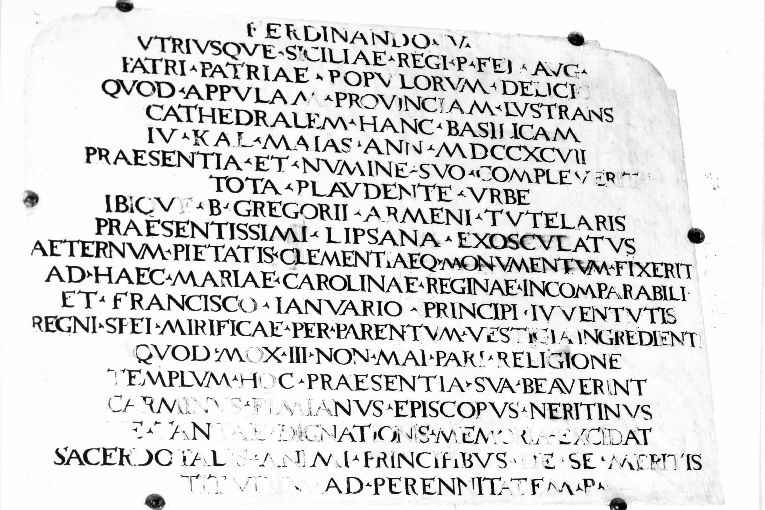 FERDINANDO · V
VTRIVSQVE · SICILIAE · REGI · P · FEL · AVG ·
PATRI · PATRIAE · POPVLORVM · DELICI
QVOD · APPVLAM · PROVINCIAM · LVSTRANS
CATHEDRALEM · HANC · BASILICAM
IV · KAL · MAIAS · ANN · MDCCXCVII
PRAESENTIA · ET · NVMINE · SVO · COMPLEVERIT
TOTA · PLAVDENTE · VRBE
IBIQVE · B · GREGORII · ARMENI · TVTELARIS
PRAESENTISSIMI · LIPSANA · EXOSCVLATVS
AETERNVM · PIETATIS · CLEMENTIAEQ · MONVMENTVM · FIXERIT
AD · HAEC · MARIAE · CAROLINAE · REGINAE · INCOMPARABILI ·
ET · FRANCISCO · IANVARIO · PRINCIPI · IVVENTVTIS
REGNI · SPEI · MIRIFICAE · PER · PARENTVM · VESTIGIA INGREDIENTI
QVOD · MOX · III · NON · MAI · PARI · RELIGIONE
TEMPLVM · HOC · PRAESENTIA · SVA · BEAVERINT
CARMINVS · FIMIANVS · EPISCOPVS · NERITINVS
TANTAE · DIGNATIONIS · MEMORIA · EXCIDAT
SACERDOTALIS · ANIMI · PRINCIPIBVS · DE · SE · MERITIS
TITVLVM AD · PERENNITATEM · P ·